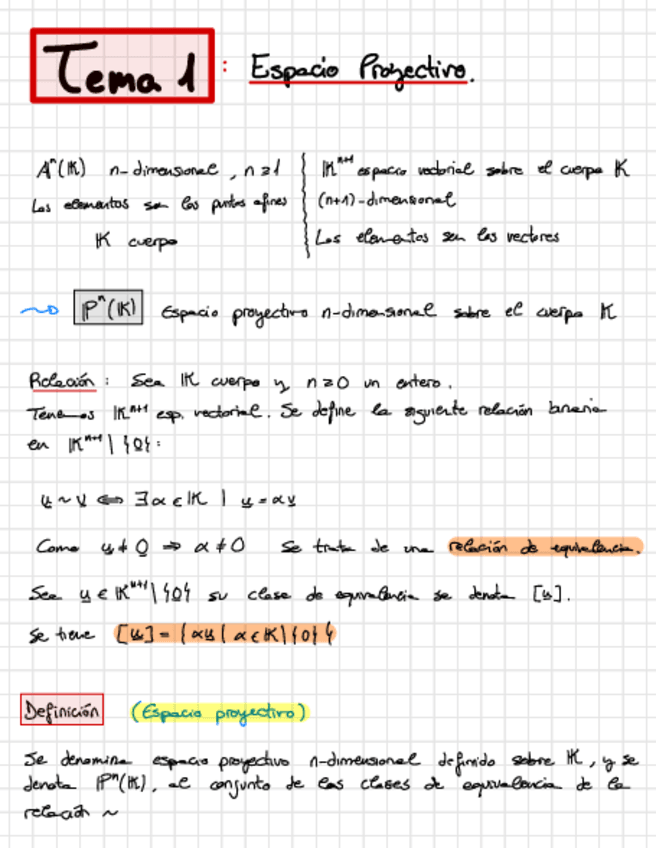 Tema 1 : Espacio Proyectivo.
Aⁿ(𝕂) n-dimensional, n≥1
Los elementos son los puntos afines
𝕂 cuerpo
𝕂ⁿ⁺¹ espacio vectorial sobre el cuerpo 𝕂
(n+1)-dimensional
Los elementos son los vectores
⇝ ℙⁿ(𝕂) Espacio proyectivo n-dimensional sobre el cuerpo 𝕂
Relación: Sea 𝕂 cuerpo y n≥0 un entero.
Tenemos 𝕂ⁿ⁺¹ esp. vectorial. Se define la siguiente relación binaria
en 𝕂ⁿ⁺¹ \ {0}:
u ~ v ⟺ ∃α ∈ 𝕂 | u = αv
Como u ≠ 0 ⇒ α ≠ 0 Se trata de una relación de equivalencia.
Sea u ∈ 𝕂ⁿ⁺¹ \ {0} su clase de equivalencia se denota [u].
Se tiene [u] = {αu | α ∈ 𝕂 \ {0}}
Definición (Espacio proyectivo)
Se denomina espacio proyectivo n-dimensional definido sobre 𝕂, y se
denota ℙⁿ(𝕂), al conjunto de las clases de equivalencia de la
relación ~